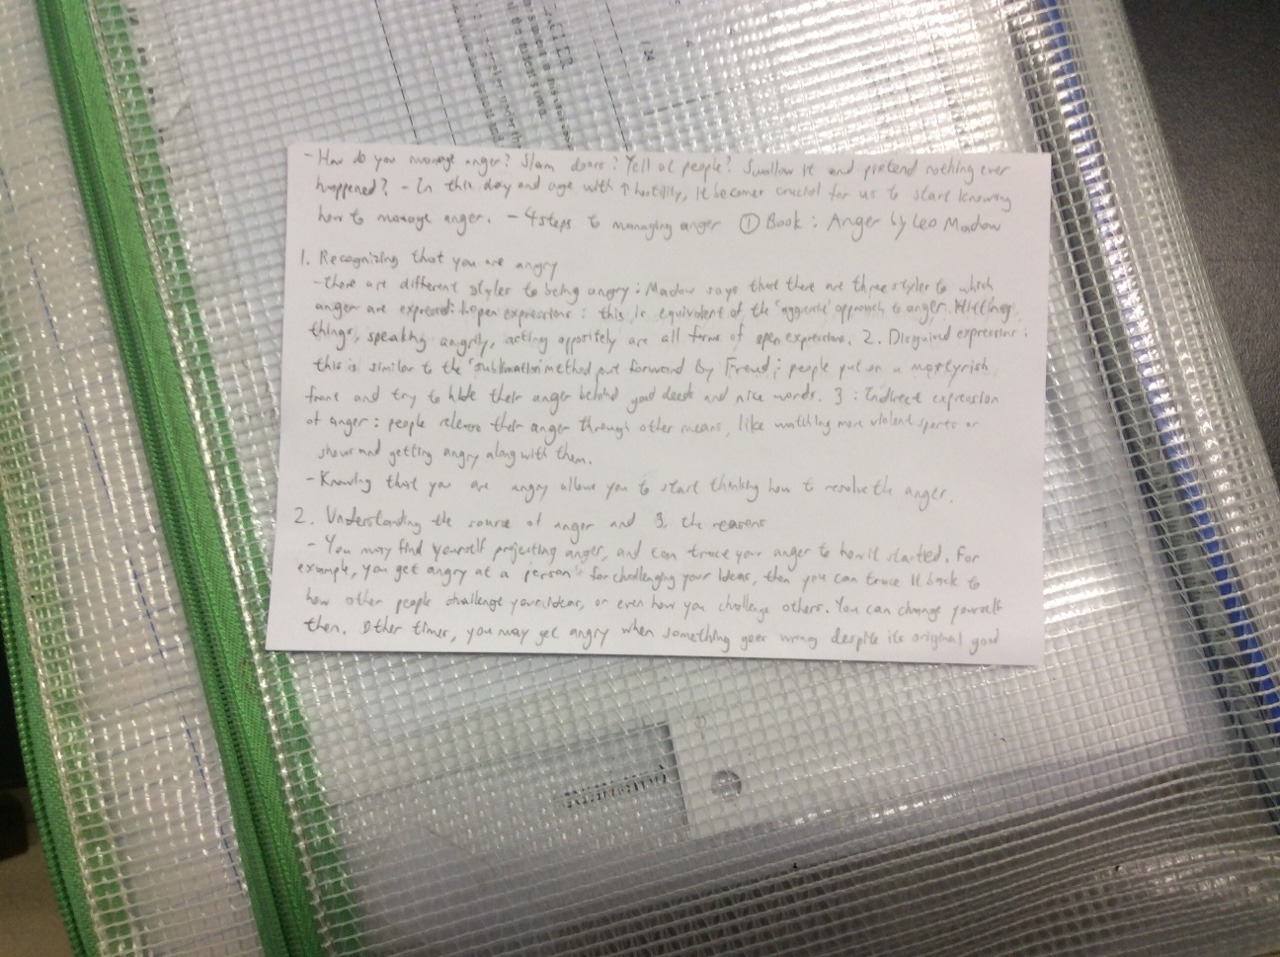 - How do you manage anger? Slam doors? Yell at people? Swallow it and pretend nothing ever
happened? - In this day and age with ↑ hostility, it becomes crucial for us to start knowing
how to manage anger. - 4 steps to managing anger ① Book: Anger by Leo Madow
1. Recognizing that you are angry
- there are different styles to being angry: Madow says that there are three styles to which
anger are expressed: 1. open expressions: this is equivalent of the "aggressive" approach to anger. Hitting
things, speaking angrily, acting oppositely are all forms of open expressions. 2. Disguised expressions:
this is similar to the "sublimation" method put forward by Freud; people put on a martyrish
front and try to hide their anger behind good deeds and nice words. 3: Indirect expression
of anger: people release their anger through other means, like watching more violent sports or
shows and getting angry along with them.
- Knowing that you are angry allows you to start thinking how to resolve the anger.
2. Understanding the source of anger and 3. the reasons
- You may find yourself projecting anger, and can trace your anger to how it started. For
example, you get angry at a person for challenging your ideas, then you can trace it back to
how other people challenge your ideas, or even how you challenge others. You can change yourself
then. Other times, you may get angry when something goes wrong despite its original good